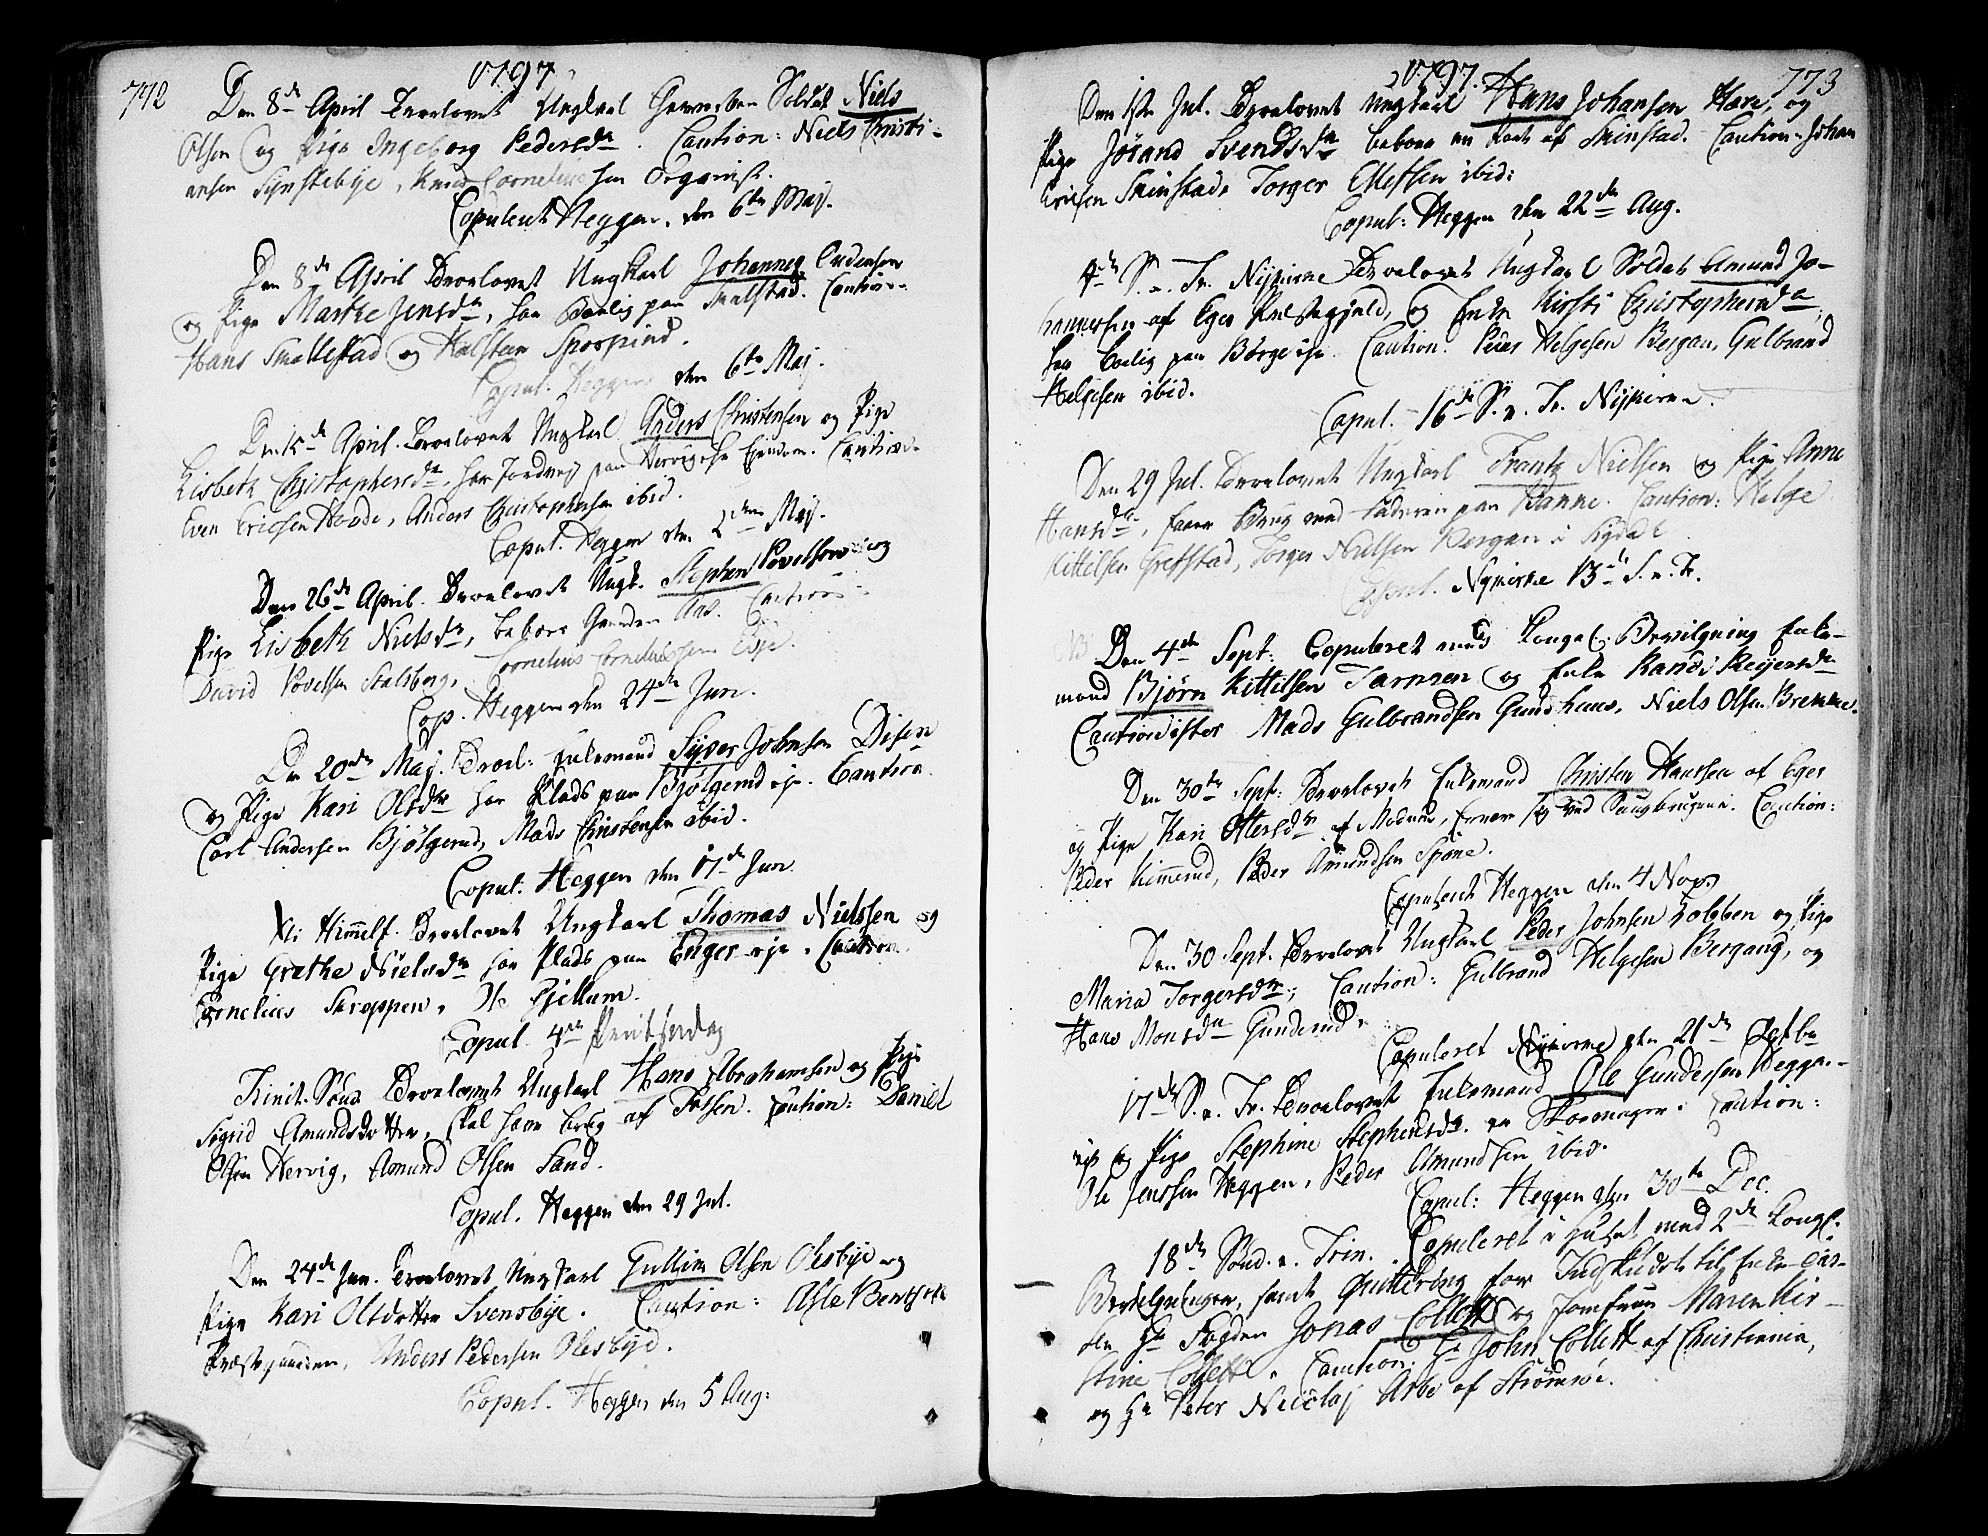 772
1797
Den 8de April Trolovet Ungkarl Gevorben Soldat Niels
Olsen og Pige Ingeborg Pedersdr. Caution: Niels Christi-
ansen Synstebye, Knud Corneliussen Organist.
Copuleret Heggen, den 6te Maj.
Den 8de April Trolovet Ungkarl Johannes Andersen
og Pige Marthe Jensdr, har Boelig paa Smalstad. Caution:
Hans Smallestad og Halsteen Sporpind.
Copul. Heggen den 6te Maj.
Den 15de April. Trolovet Ungkarl Anders Christensen og Pige
Lisbeth Christophersdr, har Jordvej paa Hervigs Eiendom. Caution:
Even Ericsen Hovde, Anders Christophersen ibid.
Copul. Heggen den 2den Maj.
Den 26de April. Trolovet Ungk. Stephen Povelsen og
Pige Lisbeth Nielsdr, beboer Gaarden Aas. Caution:
David Povelsen Stalsberg, Cornelius Corneliussen Eeje.
Cop. Heggen den 24de Jun.
Den 20de Maj. Trol: Enkemand Syver Johnsen Disen
og Pige Kari Olsdr har Plads paa Bjølgerud eje. Caution:
Carl Andersen Bjølgerud, Mads Christensen ibid.
Copul: Heggen den 17de Jun.
Xti Himmelf. Trolovet Ungkarl Thomas Nielssen og
Pige Grethe Nielsdr har Plads paa Enger eje. Caution
Cornelius Skreppen, Ole Gjellum.
Copul. 4de Penitsondag
Trinit. Sønd. Trolovet Ungkarl Hans Abrahamsen og Pige
Sigrid Amundsdotter, skal have brug af Fossen. Caution: Daniel
Olsen Hervig, Amund Olsen Sand.
Copul. Heggen den 29 Jul.
Den 24de Jun. Trolovet Ungkarl Gullim Olsen Olesbye og
Pige Kari Olsdotter Svensbye. Caution: Asle Bentsen
Præstegaarden, Anders Pedersen Olesbye.
Copul. Heggen den 5 Aug:
1797.
773
Den 1ste Jul. Trolovet Ungkarl Hans Johansen Hære, og
Pige Jørand Svendsdr beboer en Part af Skinstad. Caution: Johan
Ericsen Skinstad, Torger Ellefsen ibid:
Copul: Heggen den 22de Aug.
4de S. e. Tr. Nykirke Trolovet Ungkarl Soldat Amund Jo-
hannesen af Eger Præstegjeld, og Enke Kirsti Christophersdr,
har Boelig paa Børge eje. Caution: Peder Helgesen Bergan, Gulbrand
Helgesen ibid.
Copul. 16de S. e. Tr. Nykirke.
Den 29 Jul. Trolovet Ungkarl Frantz Nielsen og Pige Anne
Hansdr, faaer Brug med Faderen paa Ramne. Caution: Helge
Kittilsen Grefstad, Torger Nielsen Bergan i Sigdal.
Copul. Nykirke 13de S. e. Tr.
NB Den 4de Sept: Copuleret med Kongel. Bevilgning Enke-
mand Bjørn Kittilsen Tarnsen og Enke Randi Reiersdr
Cautionister Mads Gulbrandsen Gundhuus, Niels Olsen Bremme.
Den 30te Sept: Trolovet Enkemand Christen Hanssen af Eger
og Pige Kari Ottersdr af Modum, Ernærer sig ved Saugbrugene. Caution:
Peder Kimmerud, Peder Amundsen Spone.
Copuleret Heggen den 4 Nov.
Den 30 Sept. Trolovet Ungkarl Peder Johnsen Kolsben og Pige
Maria Torgersdr; Caution: Gulbrand Helgesen Bergang, og
Hans Monsdr Gunderud.
Copuleret Nykirke den 21de Octbr
17de S. e. Tr. Trolovet Enkemand Ole Gundersen Heggen-
eje og Pige Stephine Stephensdr. er Skovmager. Caution:
Ole Jenssen Heggen, Peder Amundsen ibid.
Copul: Heggen den 30te Dec.
18de Sønd. e. Trin. Copuleret i Huset med 2de Kongl.
Bevilgninger, samt Quittering for Indskudet til Enke-Cas-
sen Hr Fogden Jonas Collett og Jomfrue Maren Kir-
stine Collett. Caution: Hr John Collett af Christiania,
og Hr Peter Nicolaj Arbo af Strømsøe.